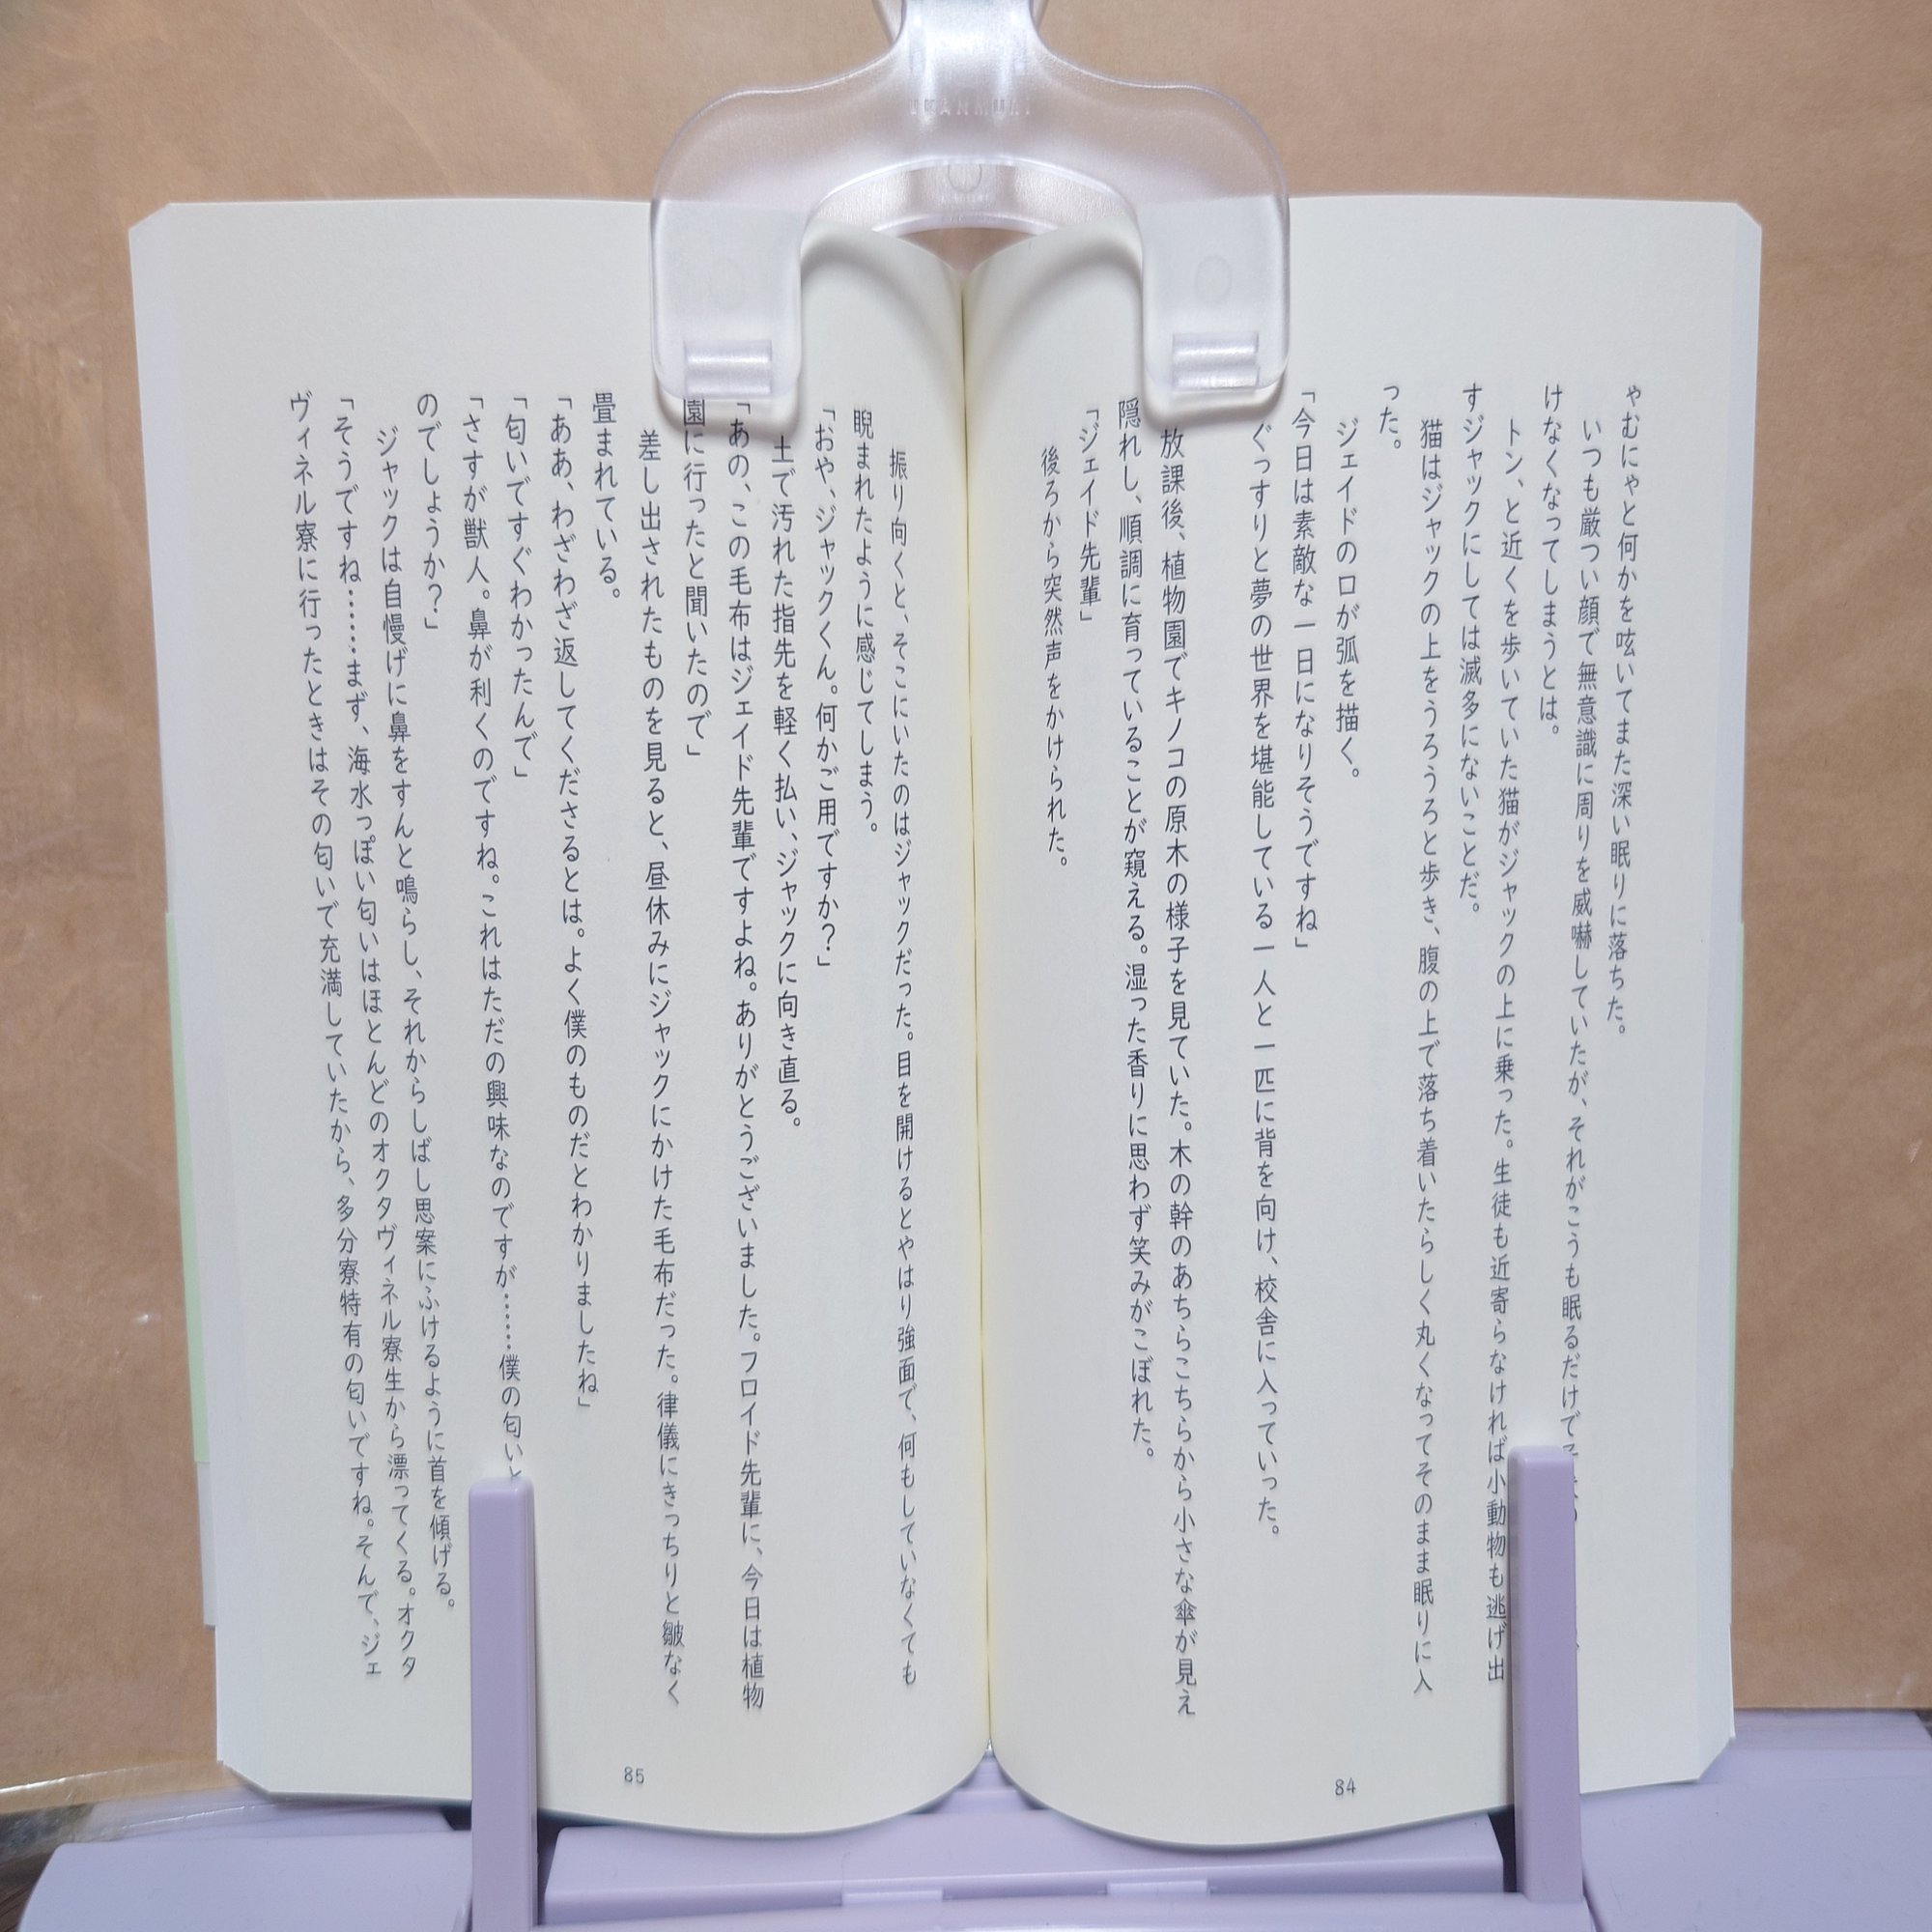 ゃむにゃと何かを呟いてまた深い眠りに落ちた。
いつも厳つい顔で無意識に周りを威嚇していたが、それがこうも眠るだけで
けなくなってしまうとは。
トン、と近くを歩いていた猫がジャックの上に乗った。生徒も近寄らなければ小動物も逃げ出
すジャックにしては滅多にないことだ。
猫はジャックの上をうろうろと歩き、腹の上で落ち着いたらしく丸くなってそのまま眠りに入
った。
ジェイドの口が弧を描く。
「今日は素敵な一日になりそうですね」
ぐっすりと夢の世界を堪能している一人と一匹に背を向け、校舎に入っていった。
放課後、植物園でキノコの原木の様子を見ていた。木の幹のあちらこちらから小さな傘が見え
隠れし、順調に育っていることが窺える。湿った香りに思わず笑みがこぼれた。
「ジェイド先輩」
後ろから突然声をかけられた。
84
振り向くと、そこにいたのはジャックだった。目を開けるとやはり強面で、何もしていなくても
睨まれたように感じてしまう。
「おや、ジャックくん。何かご用ですか?」
土で汚れた指先を軽く払い、ジャックに向き直る。
「あの、この毛布はジェイド先輩ですよね。ありがとうございました。フロイド先輩に、今日は植物
園に行ったと聞いたので」
差し出されたものを見ると、昼休みにジャックにかけた毛布だった。律儀にきっちりと皺なく
畳まれている。
「ああ、わざわざ返してくださるとは。よく僕のものだとわかりましたね」
「匂いですぐわかったんで」
「さすが獣人。鼻が利くのですね。これはただの興味なのですが……僕の匂い
のでしょうか?」
ジャックは自慢げに鼻をすんと鳴らし、それからしばし思案にふけるように首を傾げる。
「そうですね……まず、海水っぽい匂いはほとんどのオクタヴィネル寮生から漂ってくる。オクタ
ヴィネル寮に行ったときはその匂いで充満していたから、多分寮特有の匂いですね。そんで、ジェ
85